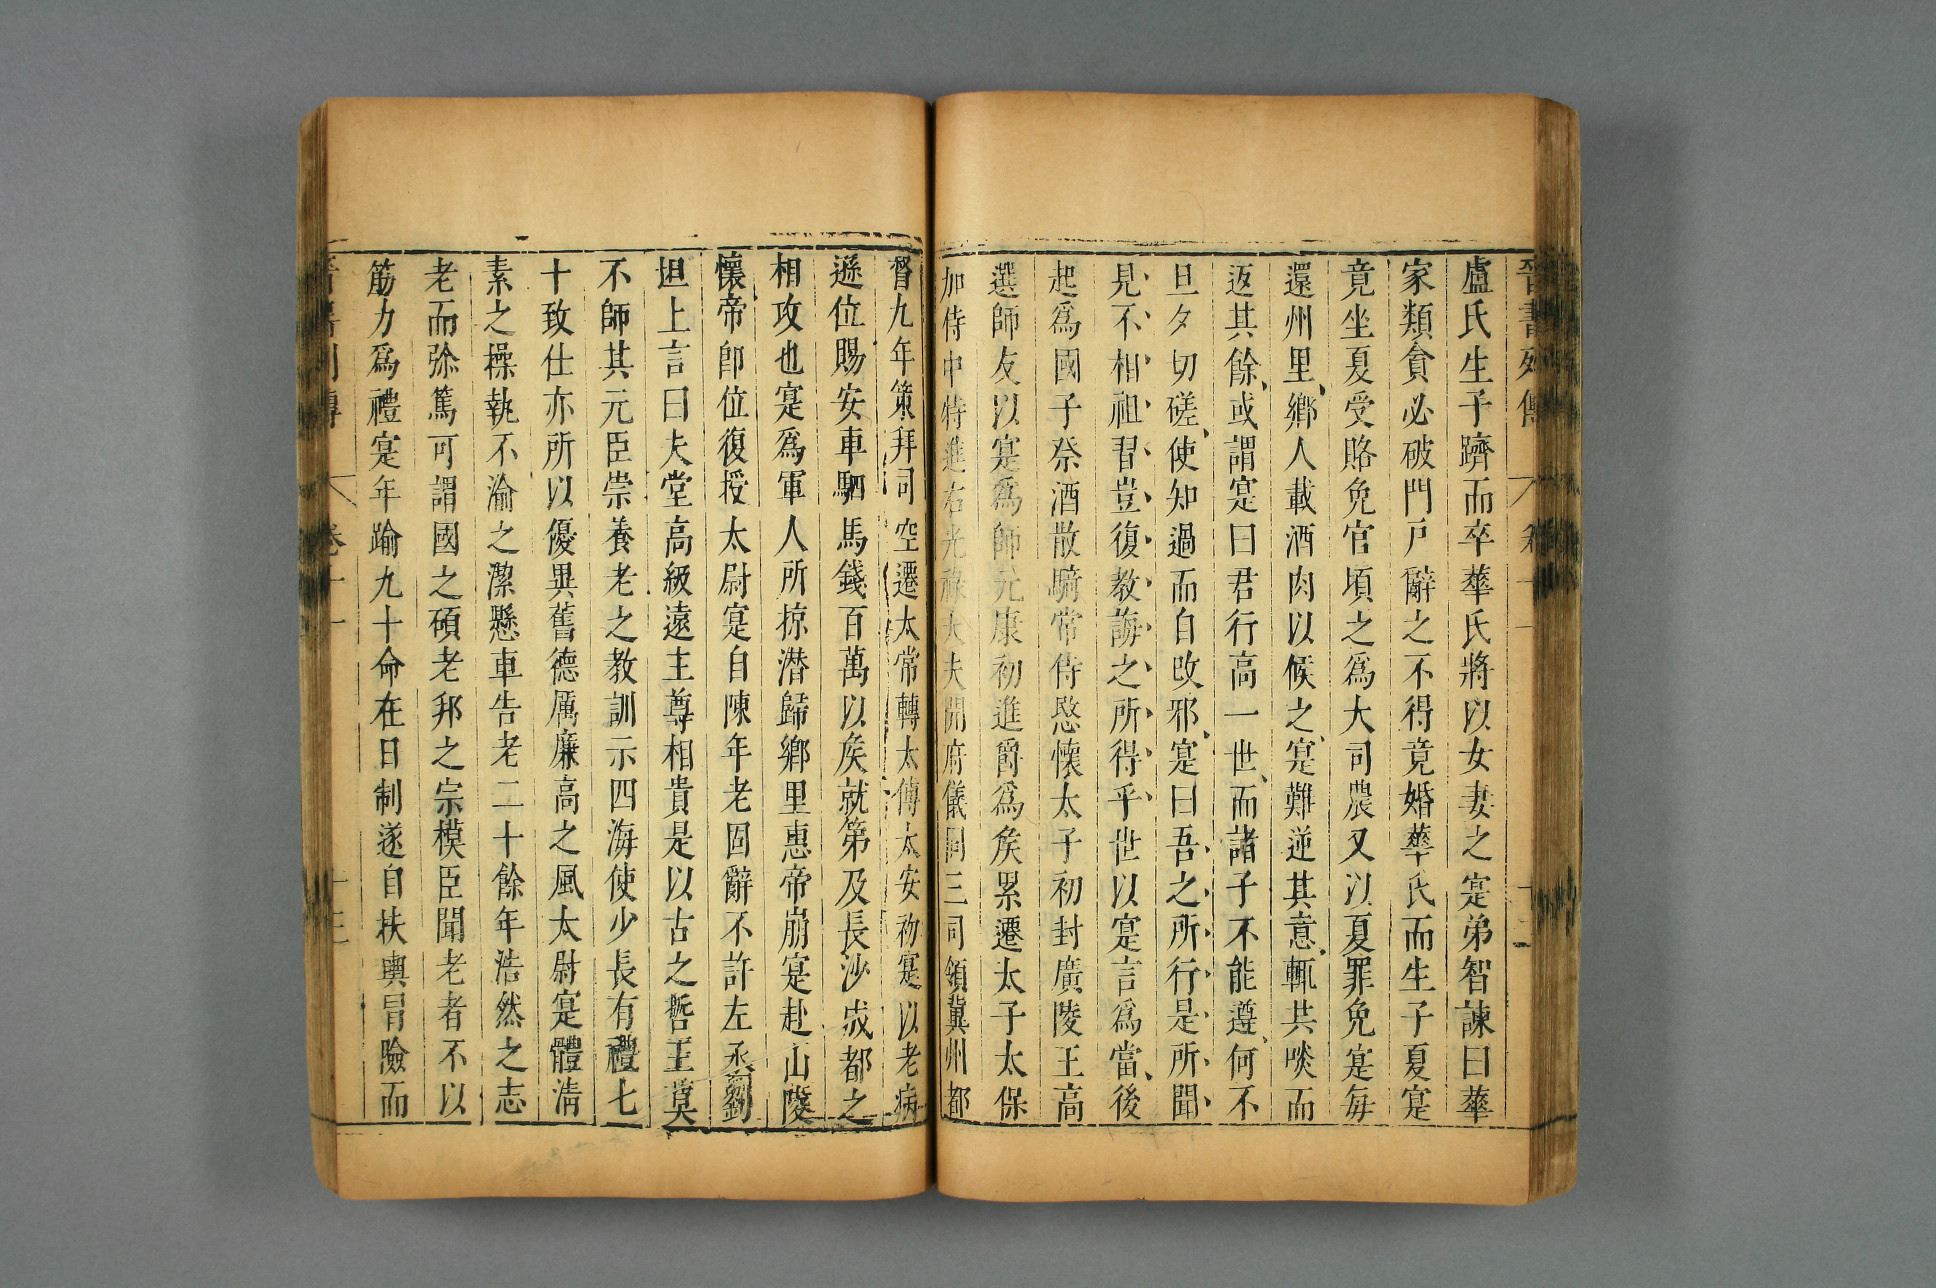 晉書列傳 卷十一 十三
盧氏生子躋而卒華氏將以女妻之寔弟智諫曰華
家類貪必破門戸辭之不得竟婚華氏而生子夏寔
竟坐夏受賂免官頃之爲大司農又以夏罪免寔每
還州里鄉人載酒肉以候之寔難逆其意輒共啖而
返其餘或謂寔曰君行高一世而諸子不能遵何不
旦夕切磋使知過而自改邪寔曰吾之所行是所聞
見不相祖習豈復教誨之所得乎世以寔言爲當後
起爲國子祭酒散騎常侍愍懷太子初封廣陵王高
選師友以寔爲師元康初進爵爲矦累遷太子太保
加侍中特進右光祿大夫開府儀同三司領冀州都
督九年策拜司空遷太常轉太傅太安初寔以老病
遜位賜安車駟馬錢百萬以矦就第及長沙成都之
相攻也寔爲軍人所掠潜歸鄉里惠帝崩寔赴山陵
懷帝卽位復授太尉寔自陳年老固辭不許左丞劉
坦上言曰夫堂高級遠主尊相貴是以古之哲王莫
不師其元臣崇養老之教訓示四海使少長有禮七
十致仕亦所以優異舊德厲廉高之風太尉寔體清
素之操執不渝之潔懸車告老二十餘年浩然之志
老而彌篤可謂國之碩老邦之宗模臣聞老者不以
筋力爲禮寔年踰九十命在日制遂自扶輿冒險而
晉書列傳 卷十一 十三